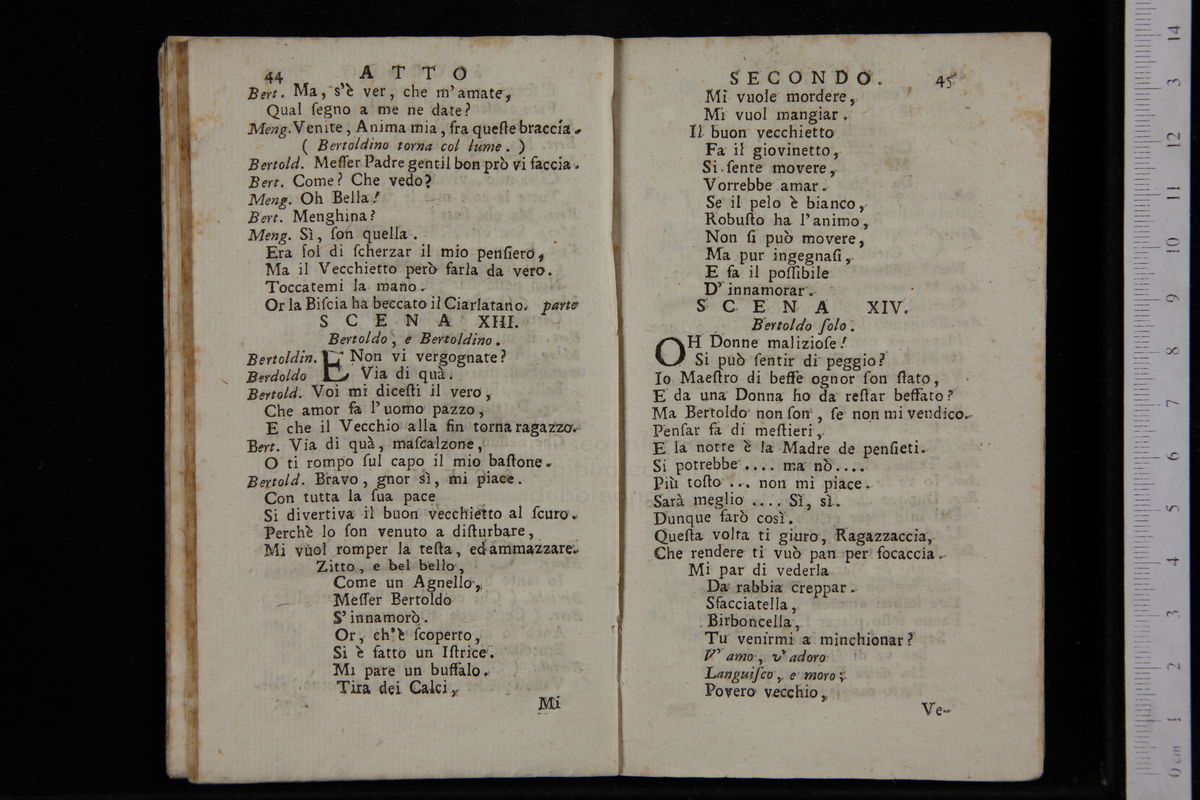 44 ATTO
Bert. Ma, s'è ver, che m'amate,
Qual ſegno a me ne date?
Meng. Venite, Anima mia, fra queſte braccia.
( Bertoldino torna col lume. )
Bertold. Meſſer Padre gentil bon prò vi faccia.
Bert. Come? Che vedo?
Meng. Oh Bella!
Bert. Menghina?
Meng. Sì, ſon quella.
Era ſol di ſcherzar il mio penſiero,
Ma il Vecchietto però farla da vero.
Toccatemi la mano.
Or la Biſcia ha beccato il Ciarlatano. parte
SCENA XIII.
Bertoldo, e Bertoldino.
Bertoldin. E Non vi vergognate?
Berdoldo Via di quà.
Bertold. Voi mi diceſti il vero,
Che amor fa l'uomo pazzo,
E che il Vecchio alla fin torna ragazzo.
Bert. Via di quà, maſcalzone,
O ti rompo ſul capo il mio baſtone.
Bertold. Bravo, gnor sì, mi piace.
Con tutta la ſua pace
Si divertiva il buon vecchietto al ſcuro.
Perchè Io ſon venuto a diſturbare,
Mi vuol romper la teſta, ed ammazzare.
Zitto, e bel bello,
Come un Agnello,
Meſſer Bertoldo
S'innamorò.
Or, ch'è ſcoperto,
Si è fatto un Iſtrice.
Mi pare un buffalo.
Tira dei Calci,
Mi
SECONDO. 45
Mi vuole mordere,
Mi vuol mangiar.
Il buon vecchietto
Fa il giovinetto,
Si ſente movere,
Vorrebbe amar.
Se il pelo è bianco,
Robuſto ha l'animo,
Non ſi può movere,
Ma pur ingegnaſi,
E fa il poſſibile
D'innamorar.
SCENA XIV.
Bertoldo ſolo.
OH Donne malizioſe!
Si può ſentir di peggio?
Io Maeſtro di beffe ognor ſon ſtato,
E da una Donna ho da reſtar beffato?
Ma Bertoldo non ſon, ſe non mi vendico.
Penſar fa di meſtieri,
E la notte è la Madre de penſieti.
Si potrebbe .... ma nò....
Più toſto ... non mi piace.
Sarà meglio .... Sì, sì.
Dunque farò così.
Queſta volta ti giuro, Ragazzaccia,
Che rendere ti vuò pan per focaccia.
Mi par di vederla
Da rabbia creppar.
Sfacciatella,
Birboncella,
Tu venirmi a minchionar?
V'amo, v'adoro
Languiſco, e moro;
Povero vecchio,
Ve-
0cm 1 2 3 4 5 6 7 8 9 10 11 12 13 14